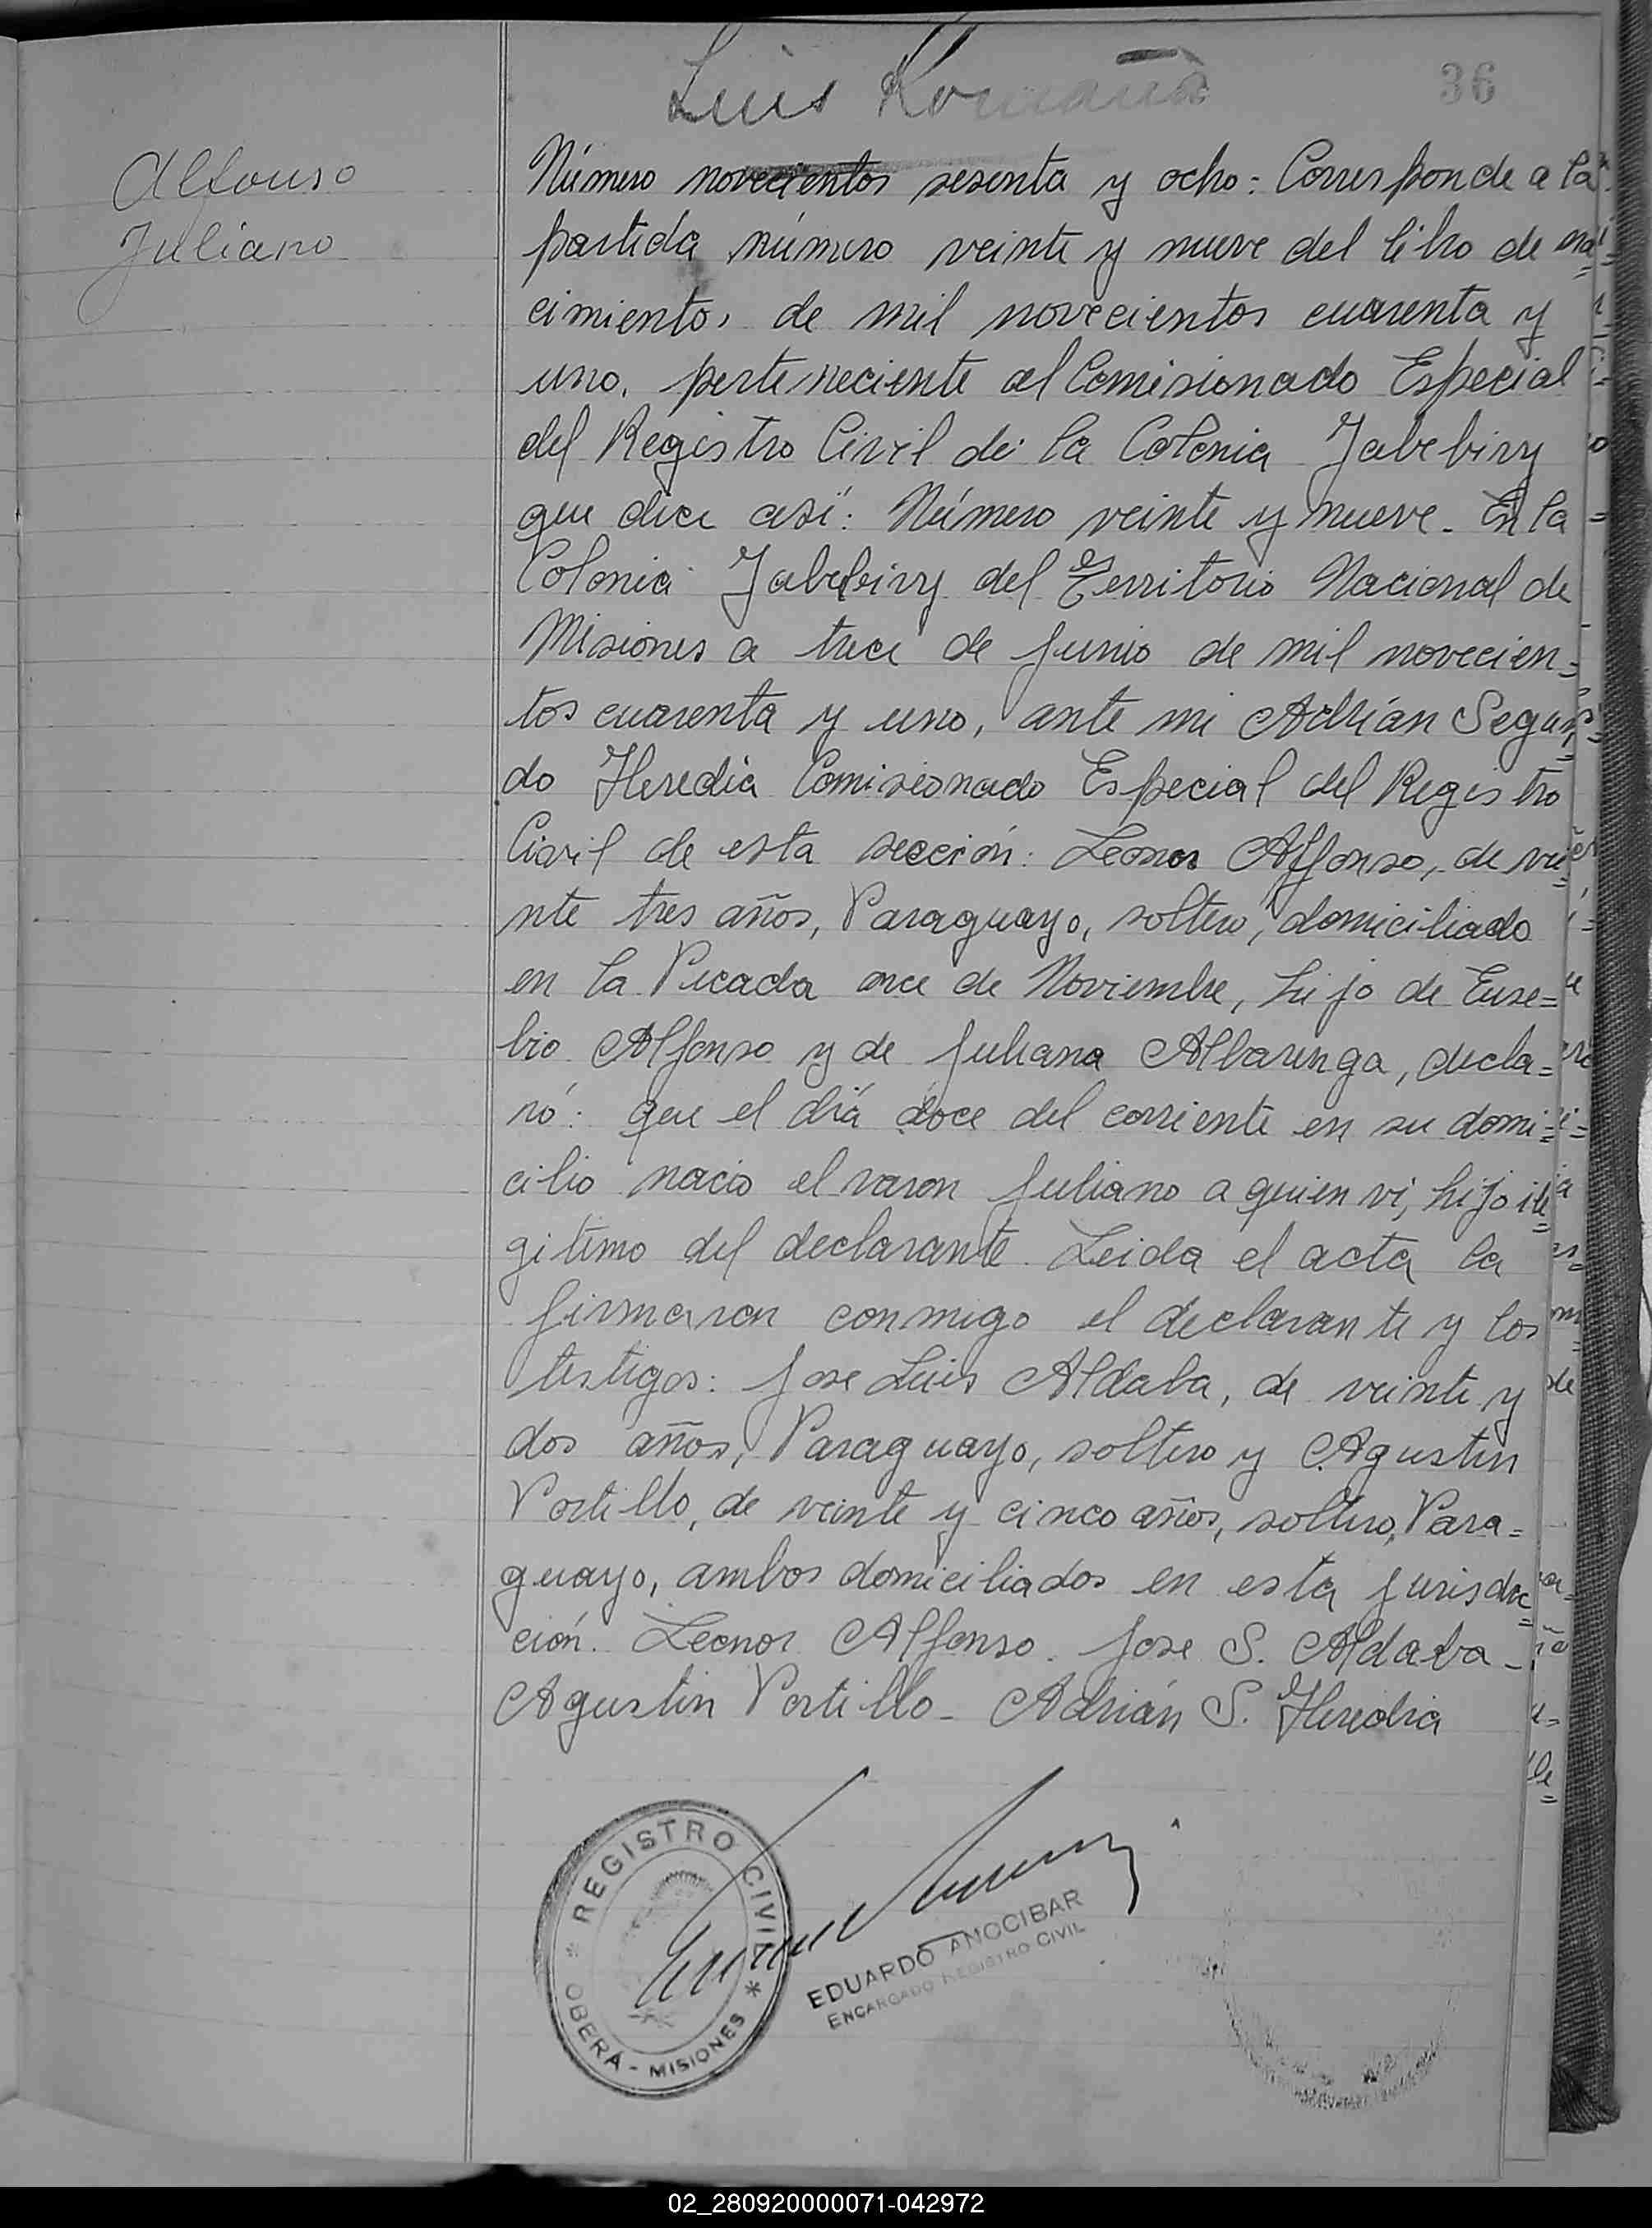 Luis Romañá
36
Alfonso
Juliano
Número novecientos sesenta y ocho: Corresponde a la
partida número veinte y nueve del libro de na=
cimientos de mil novecientos cuarenta y
uno, perteneciente al Comisionado Especial
del Registro Civil de la Colonia Yabebiry
que dice así: Número veinte y nueve. En la
Colonia Yabebiry del Territorio Nacional de
Misiones a trece de Junio de mil novecien=
tos cuarenta y uno, ante mi Adrián Segun=
do Heredia Comisionado Especial del Registro
Civil de esta sección: Leonor Alfonso, de vei=
nte tres años, Paraguayo, soltero, domiciliado
en la Picada once de Noviembre, hijo de Euse=
bio Alfonso y de Juliana Albarenga, decla=
ró: que el día doce del corriente en su domi=
cilio nacio el varon Juliano a quien vi, hijo ile=
gitimo del declarante. Leida el acta la
firmaron conmigo el declarante y los
testigos: Jose Luis Aldaba, de veinte y
dos años, Paraguayo, soltero y Agustin
Portillo, de veinte y cinco años, soltero, Para=
guayo, ambos domiciliados en esta jurisdic=
ción. Leonor Alfonso. Jose S. Aldaba -
Agustin Portillo - Adrián S. Heredia
REGISTRO CIVIL
OBERÁ - MISIONES
EDUARDO AMOCIBAR
ENCARGADO REGISTRO CIVIL
02_280920000071-042972